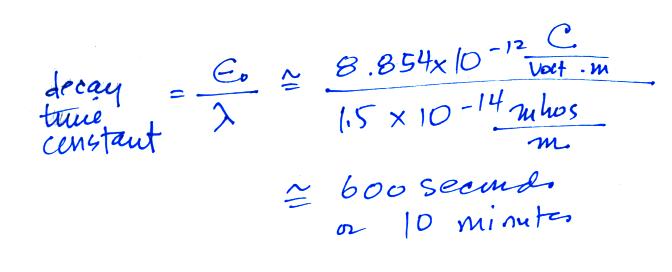 decay time constant = ϵ₀/λ ≅ 8.854 x 10⁻¹² C/Volt·m / 1.5 x 10⁻¹⁴ mhos/m
≅ 600 seconds
or 10 minutes